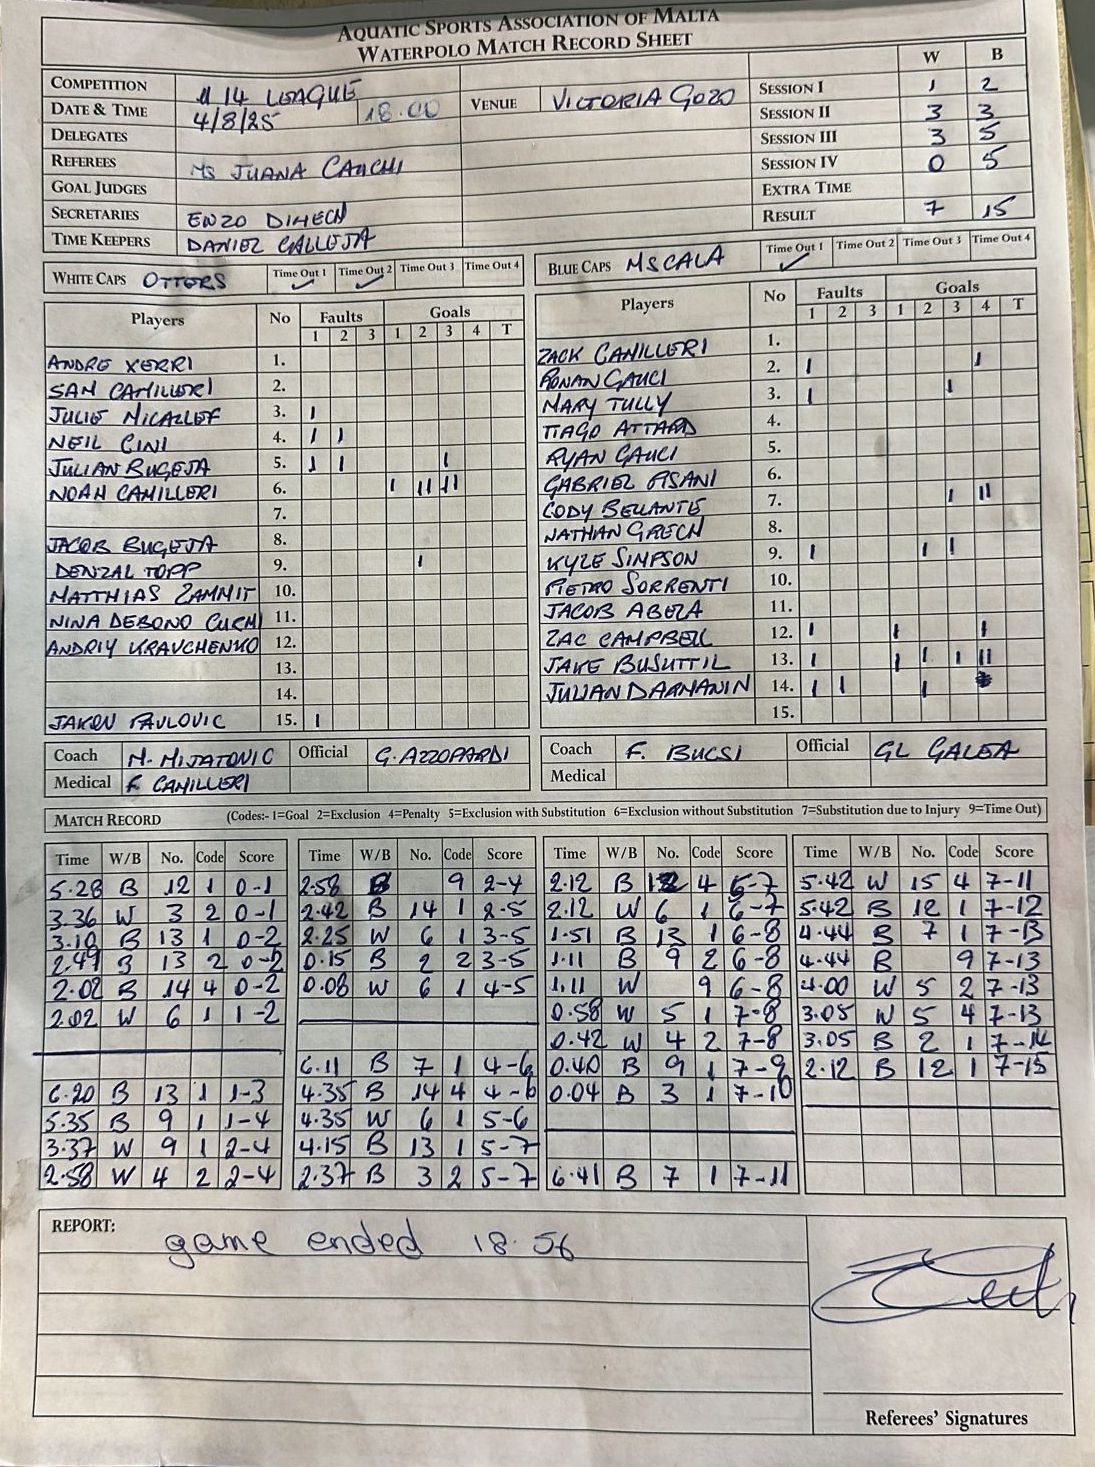 AQUATIC SPORTS ASSOCIATION OF MALTA
WATERPOLO MATCH RECORD SHEET
COMPETITION U 14 LEAGUE
DATE & TIME 4/8/25 18.00
VENUE VICTORIA GOZO
DELEGATES
REFEREES MS JUANA CAUCHI
GOAL JUDGES
SECRETARIES ENZO DIMECH
TIME KEEPERS DANIEL CALLEJA
W B
SESSION I 1 2
SESSION II 3 3
SESSION III 3 5
SESSION IV 0 5
EXTRA TIME
RESULT 7 15
WHITE CAPS OTTERS Time Out 1 ✓ Time Out 2 ✓ Time Out 3 Time Out 4
Players No Faults Goals
1 2 3 1 2 3 4 T
ANDRE XERRI 1.
SAM CAMILLERI 2.
JULIE MICALLEF 3. I
NEIL CINI 4. I I
JULIAN BUGEJA 5. I I I
NOAH CAMILLERI 6. I II II
7.
JACOB BUGEJA 8.
DENZAL TOPP 9. I
MATTHIAS ZAMMIT 10.
NINA DEBONO CURMI 11.
ANDRIY KRAVCHENKO 12.
13.
14.
JAKOV PAVLOVIC 15. I
Coach M. MIJATOVIC Official G. AZZOPARDI
Medical F. CAMILLERI
BLUE CAPS MSCALA Time Out 1 ✓ Time Out 2 Time Out 3 Time Out 4
Players No Faults Goals
1 2 3 1 2 3 4 T
ZACK CAMILLERI 1.
RONAN GAUCI 2. I I
MARY TULLY 3. I I
TIAGO ATTARD 4.
RYAN GAUCI 5.
GABRIEL PISANI 6.
CODY BELLANTE 7. I II
NATHAN GRECH 8.
KYLE SIMPSON 9. I I I
PIETRO SORRENTI 10.
JACOB ABELA 11.
ZAC CAMPBELL 12. I I I
JAKE BUSUTTIL 13. I I I I II
JULIAN DARMANIN 14. I I I
15.
Coach F. BUCSI Official GL GALEA
Medical
MATCH RECORD (Codes:- 1=Goal 2=Exclusion 4=Penalty 5=Exclusion with Substitution 6=Exclusion without Substitution 7=Substitution due to Injury 9=Time Out)
Time W/B No. Code Score
5.28 B 12 1 0-1
3.36 W 3 2 0-1
3.10 B 13 1 0-2
2.49 B 13 2 0-2
2.02 B 14 4 0-2
2.02 W 6 1 1-2
6.20 B 13 1 1-3
5.35 B 9 1 1-4
3.37 W 9 1 2-4
2.58 W 4 2 2-4
Time W/B No. Code Score
2.58 B 9 2-4
2.42 B 14 1 2-5
2.25 W 6 1 3-5
0.15 B 2 2 3-5
0.08 W 6 1 4-5
6.11 B 7 1 4-6
4.35 B 14 4 4-6
4.35 W 6 1 5-6
4.15 B 13 1 5-7
2.37 B 3 2 5-7
Time W/B No. Code Score
2.12 B 12 4 5-7
2.12 W 6 1 6-7
1.51 B 13 1 6-8
1.11 B 9 2 6-8
1.11 W 9 6-8
0.58 W 5 1 7-8
0.42 W 4 2 7-8
0.40 B 9 1 7-9
0.04 B 3 1 7-10
6.41 B 7 1 7-11
Time W/B No. Code Score
5.42 W 15 4 7-11
5.42 B 12 1 7-12
4.44 B 7 1 7-13
4.44 B 9 7-13
4.00 W 5 2 7-13
3.05 W 5 4 7-13
3.05 B 2 1 7-14
2.12 B 12 1 7-15
REPORT: game ended 18.56
Referees' Signatures